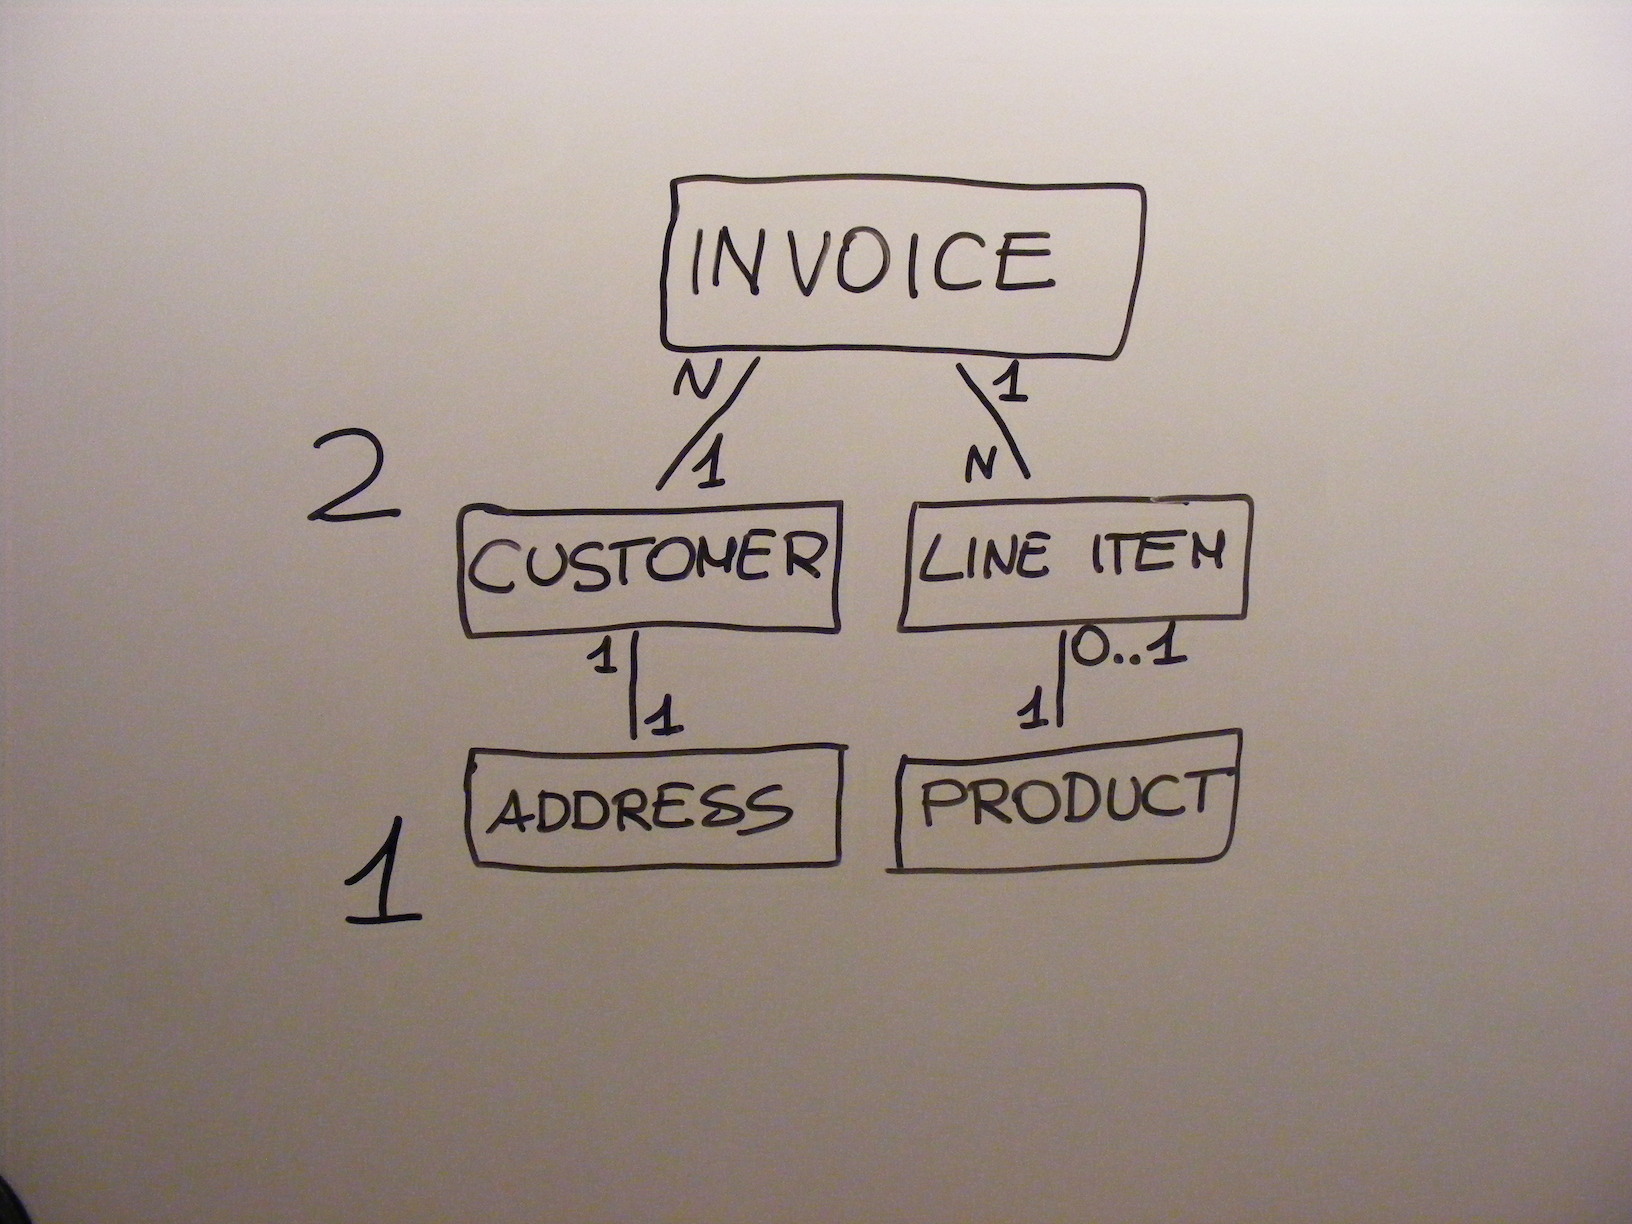 INVOICE
N 1
1 N
2
CUSTOMER LINE ITEM
1 0..1
1 1
ADDRESS PRODUCT
1